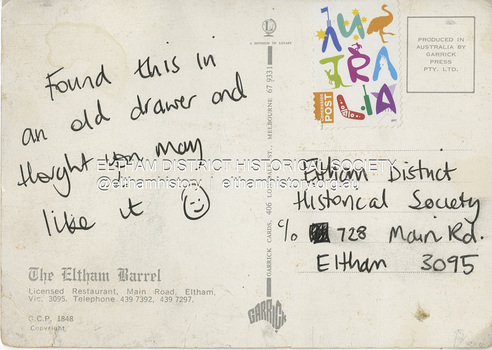 Found this in
an old drawer and
thought you may
like it
ELTHAM DISTRICT HISTORICAL SOCIETY
@elthamhistory | elthamhistory.org.au
The Eltham Barrel
Licensed Restaurant, Main Road, Eltham,
Vic. 3095. Telephone 439 7392, 439 7297.
G.C.P. 1848
Copyright
GARRICK CARDS, 406 MELBOURNE 67 9331
GARRICK
AUSTRALIA
POST
PRODUCED IN
AUSTRALIA BY
GARRICK
PRESS
PTY. LTD.
Eltham District
Historical Society
c/o 728 Main Rd.
Eltham 3095